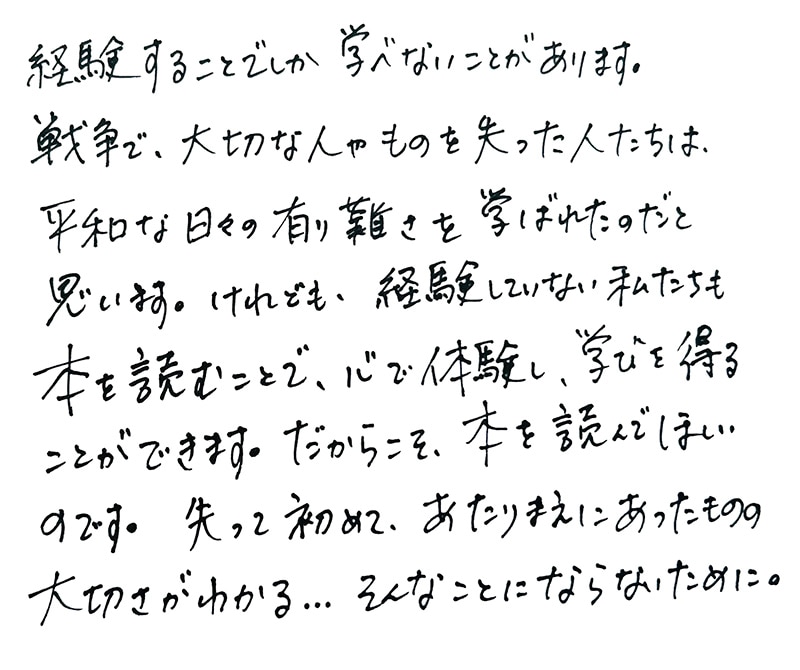 経験することでしか 学べないことがあります。
戦争で、大切な人やものを失った人たちは、
平和な日々の有り難さを 学ばれたのだと
思います。けれども、経験していない私たちも
本を読むことで、心で体験し、学びを得る
ことができます。だからこそ、本を読んでほしい
のです。失って初めて、あたりまえにあったものの
大切さがわかる... そんなことにならないために。